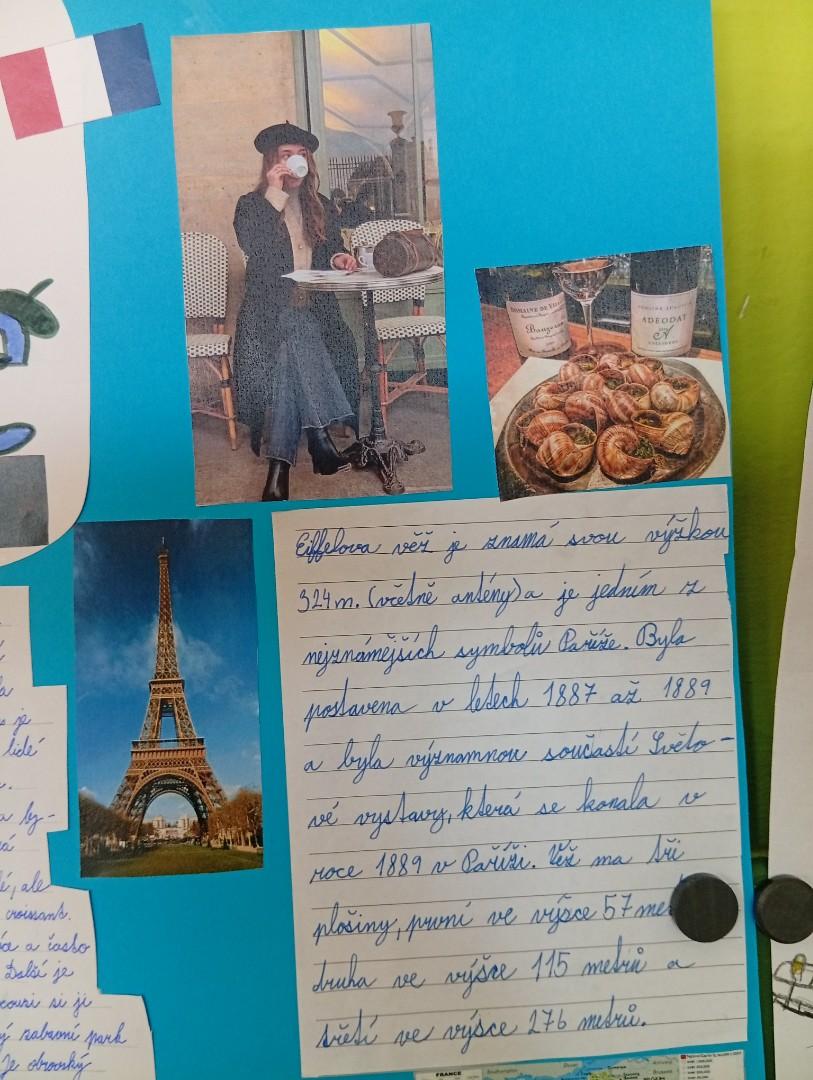 DOMAINE DE
Bouzeron
ADEODAT
Eiffelova věž je znamá svou výškou
324 m. (včetně antény) a je jedním z
nejznámějších symbolů Paříže. Byla
postavena v letech 1887 až 1889
a byla významnou součastí Světo-
vé vystavy, která se konala v
roce 1889 v Paříži. Věž ma tři
plošiny, první ve výšce 57 me
druha ve výšce 115 metrů a
třetí ve výsce 276 metrů.
je
lidé
a by-
é, ale
croissant.
a často
Další je
si ji
zabavní park
Je obrovský
FRANCE